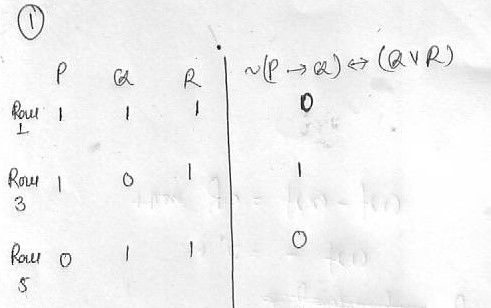 1
P Q R ~(P → Q) ↔ (Q ∨ R)
Row 1 1 1 1 0
Row 3 1 0 1 1
Row 5 0 1 1 0